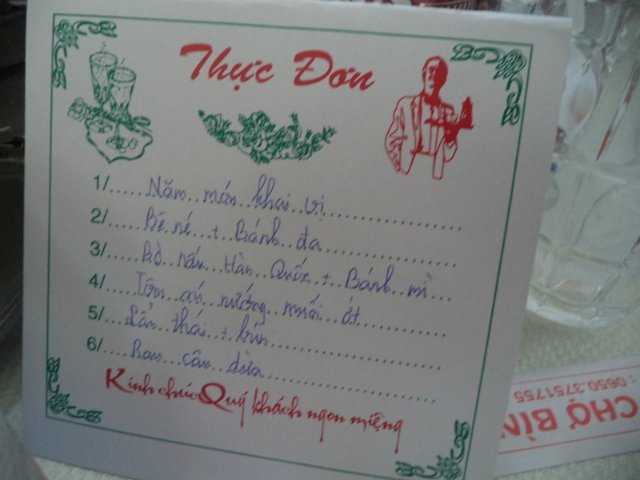 Thực Đơn
1/.....Năm...món...khai...vị...
2/.....Bê né...+...Bánh...đa...
3/.....Bò nấu...Hàn...Quốc...+...Bánh...mì...
4/.....Tôm sú...nướng...muối...ớt...
5/...Lẩu thái...+...bún...
6/.....Rau...câu...dừa...
Kính chúc Quý khách ngon miệng
: 0650.3751755
CHỢ BÌN